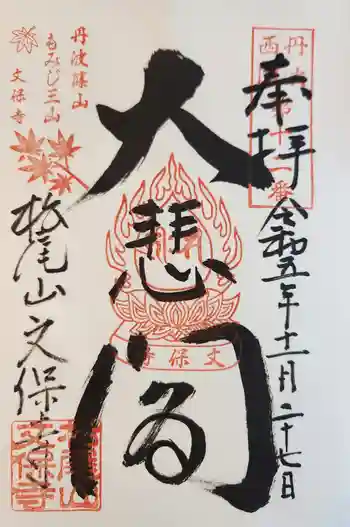 奉拝
令和五年十一月二十七日
大悲閣
丹波篠山
もみじ三山
文保寺
文保寺
松尾山文保寺
松尾山
文保寺